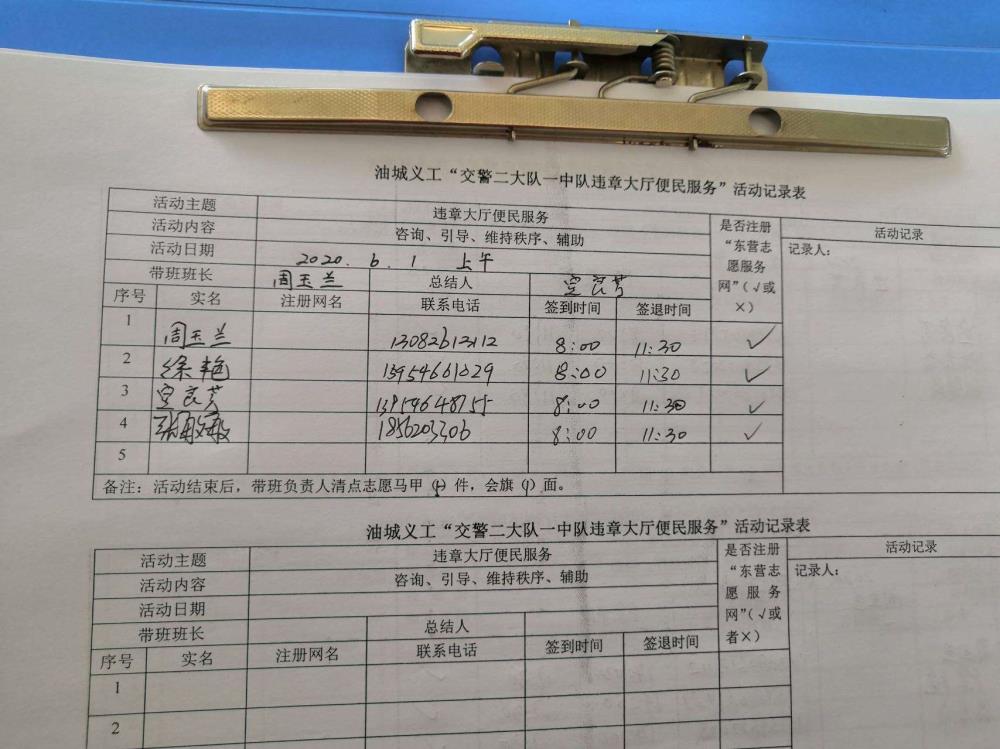 油城义工“交警二大队一中队违章大厅便民服务”活动记录表
活动主题 违章大厅便民服务 是否注册“东营志愿服务网”（√或×） 活动记录
活动内容 咨询、引导、维持秩序、辅助 记录人：
活动日期 2020.6.1 上午
带班班长 周玉兰 总结人
序号 实名 注册网名 联系电话 签到时间 签退时间
1 周玉兰 13082613112 8:00 11:30 √
2 徐艳 8:00 11:30 √
3 8:00 11:30 √
4 1856203306 8:00 11:30 √
5
备注：活动结束后，带班负责人清点志愿马甲（）件，会旗（1）面。
油城义工“交警二大队一中队违章大厅便民服务”活动记录表
活动主题 违章大厅便民服务 是否注册“东营志愿服务网”（√或者×） 活动记录
活动内容 咨询、引导、维持秩序、辅助 记录人：
活动日期
带班班长 总结人
序号 实名 注册网名 联系电话 签到时间 签退时间
1
2